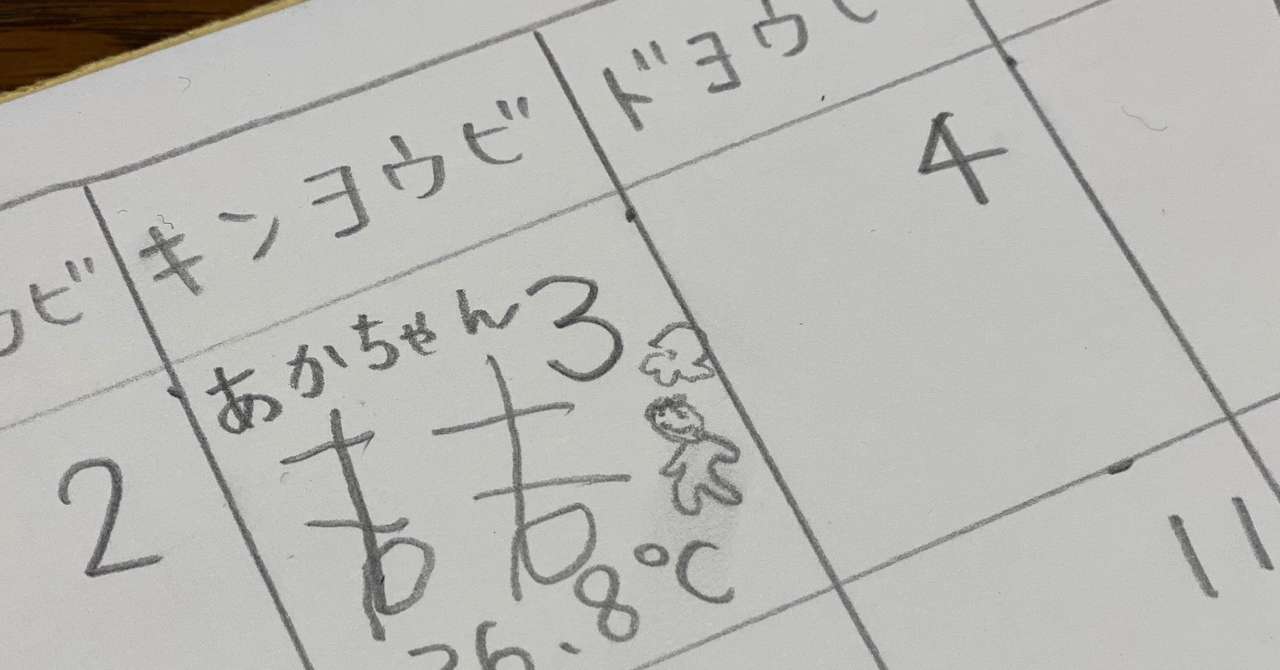 ビ キンヨウビ ドヨウビ
2 あかちゃん 3 4
まま
36.8℃
11